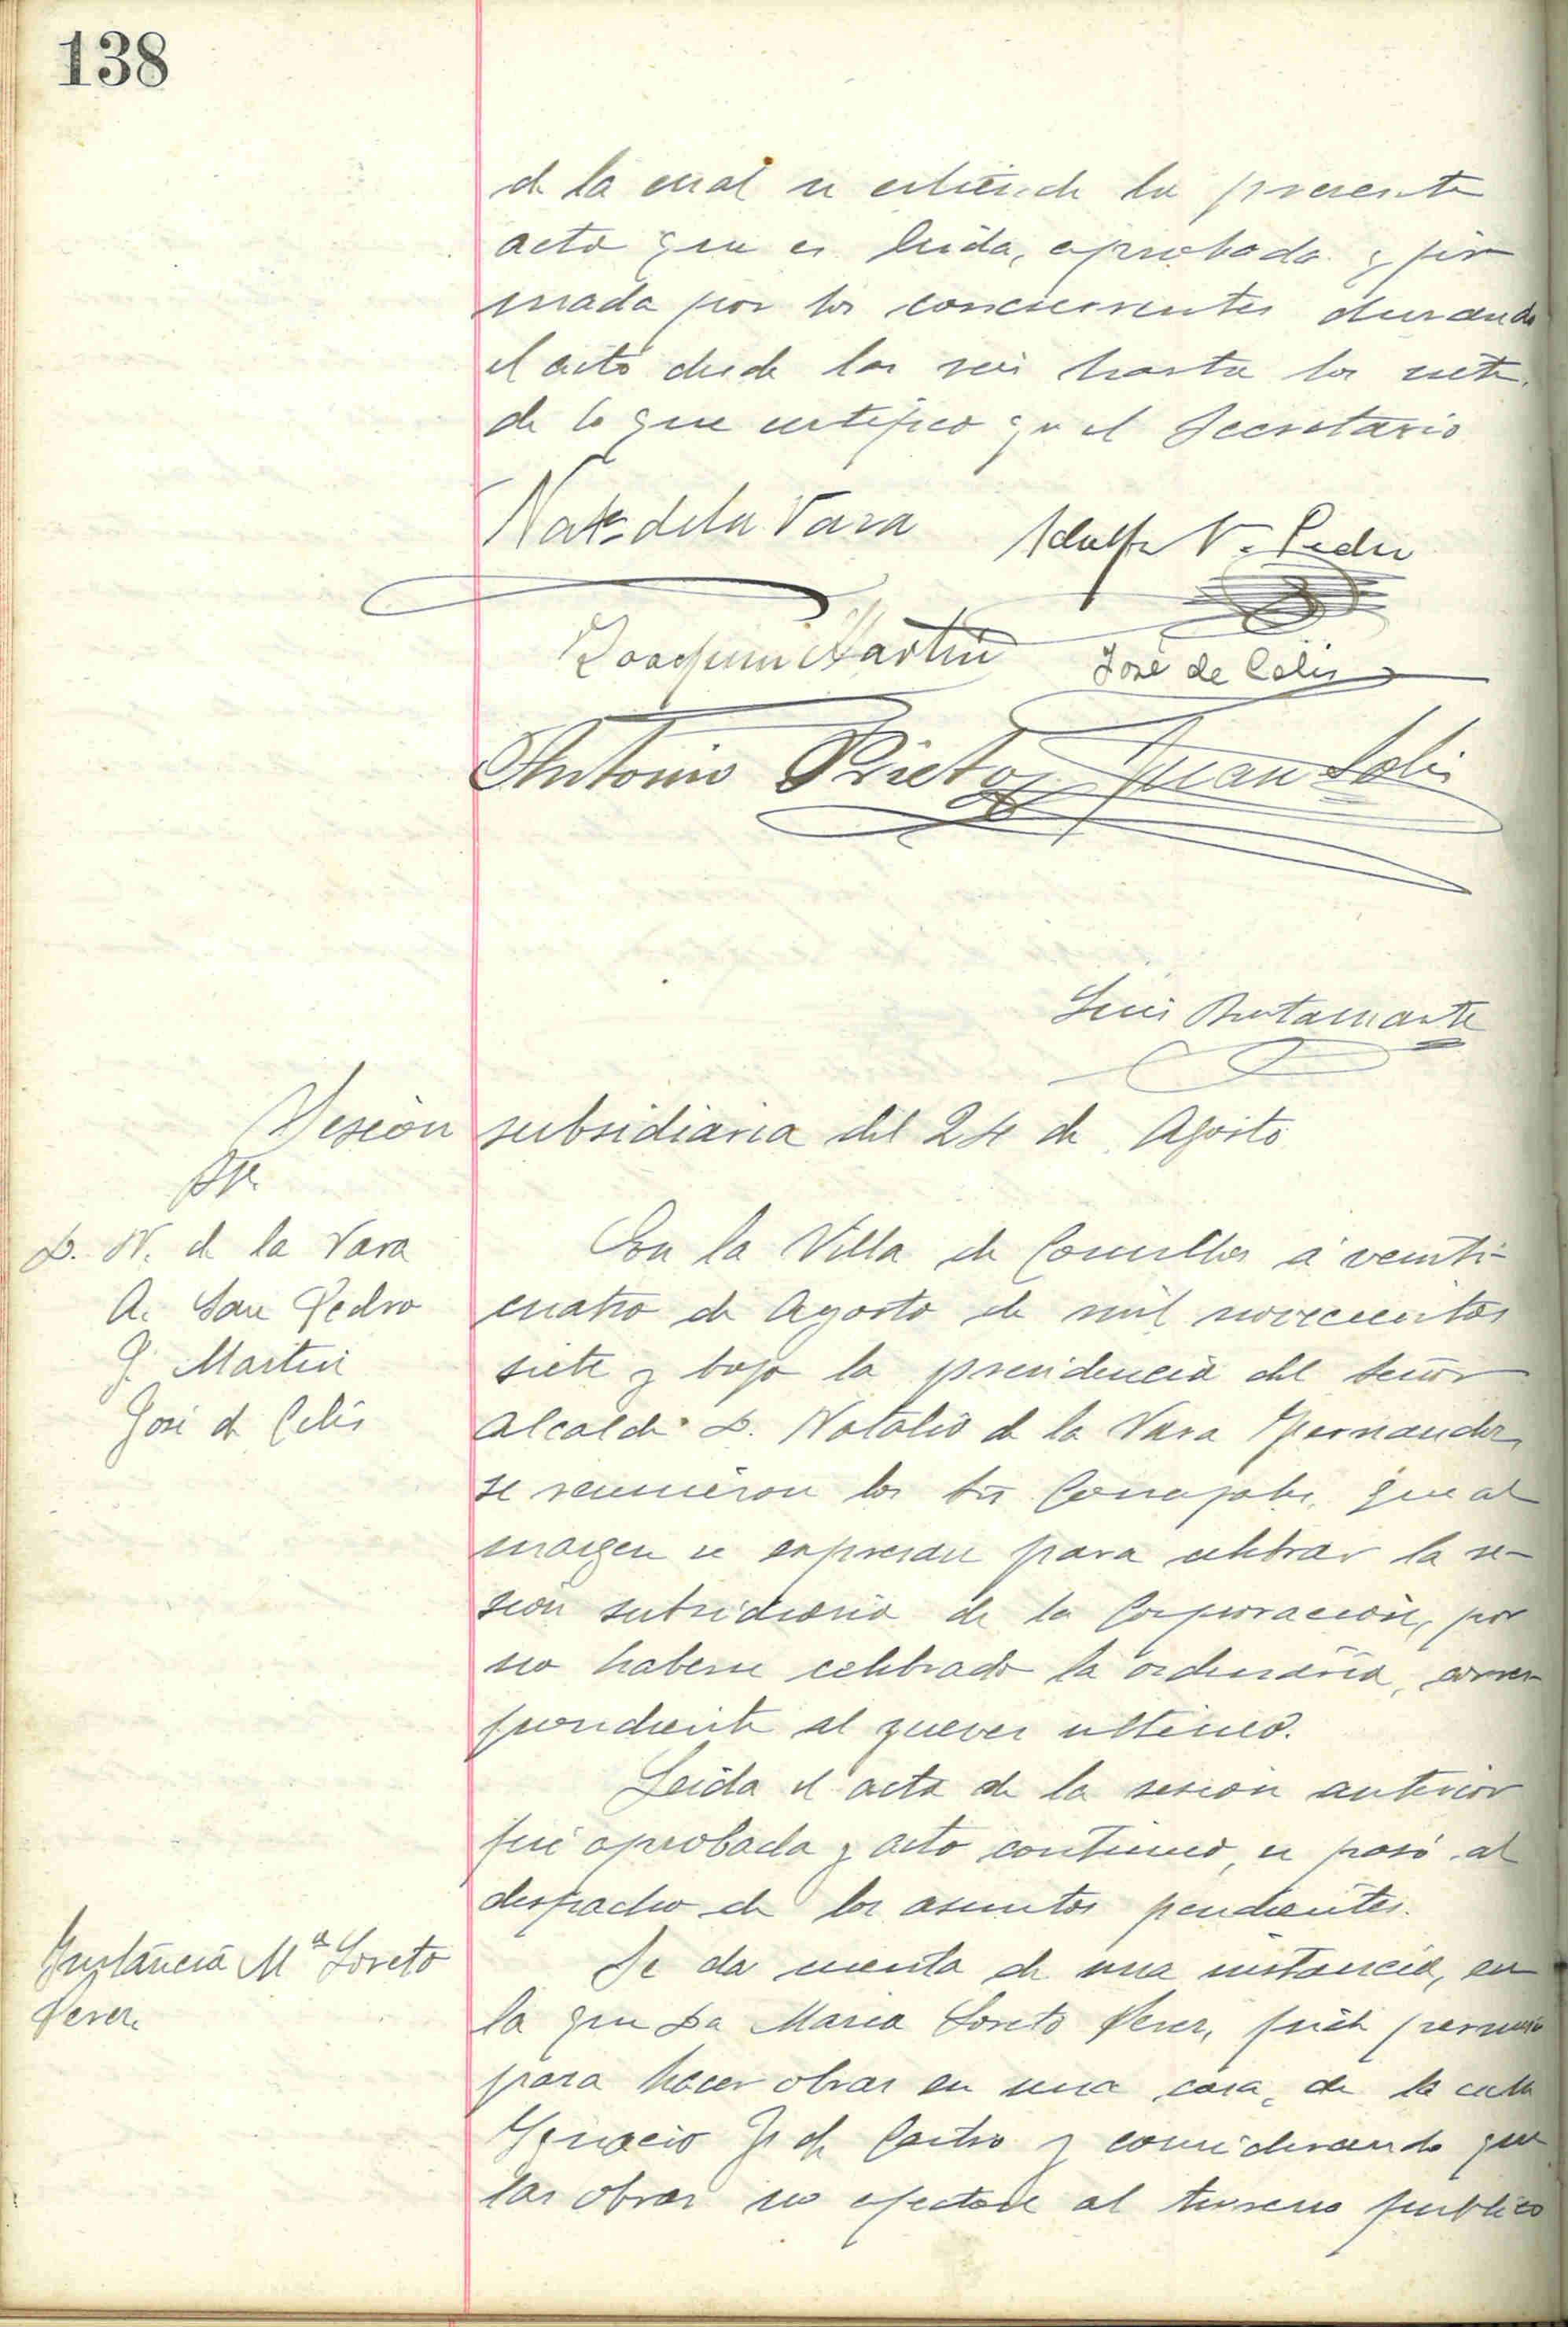 138
de la cual se extiende la presente
acta que es leida, aprobada y fir
mada por los concurrentes durando
el acto desde las seis hasta las siete,
de lo que certifico yo el Secretario
Nat. de la Vara
Adolfo S. Pedro
Joaquin Martin
José de Celis
Antonio Prieto
Juan Solis
Luis Bustamante
Sesion subsidiaria del 24 de Agosto
D. N. de la Vara
A. San Pedro
J. Martin
José de Celis
En la Villa de Comillas á veinti-
cuatro de Agosto de mil novecientos
siete y bajo la presidencia del Señor
Alcalde D. Natalio de la Vara Fernandez,
se reunieron los Srs Concejales, que al
margen se expresan para celebrar la se-
sion subsidiaria de la Corporación, por
no haberse celebrado la ordinaria, corres-
pondiente al jueves ultimo.
Leida el acta de la sesion anterior
fué aprobada y acto continuo, se pasó al
despacho de los asuntos pendientes.
Instancia Mª Loreto
Perez
Se da cuenta de una instancia, en
la que Da Maria Loreto Perez, pide permiso
para hacer obras en una casa, de la calle
Ignacio F. de Castro y considerando que
las obras no afectan al terreno publico